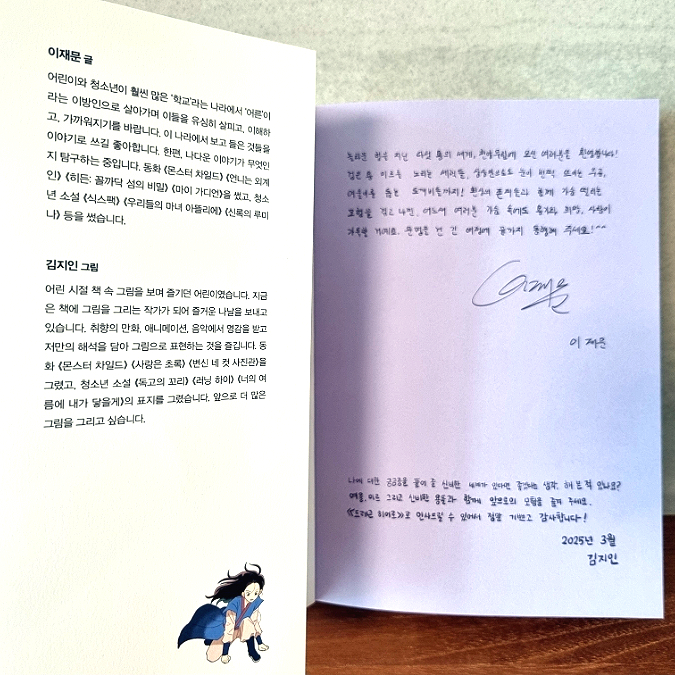 이재문 글
어린이와 청소년이 훨씬 많은 '학교'라는 나라에서 '어른'이
라는 이방인으로 살아가며 이들을 유심히 살피고, 이해하
고, 가까워지기를 바랍니다. 이 나라에서 보고 들은 것들을
이야기로 쓰길 좋아합니다. 한편, 나다운 이야기가 무엇인
지 탐구하는 중입니다. 동화 《몬스터 차일드》 《언니는 외계
인》 《히든: 꼴까닥 섬의 비밀》 《마이 가디언》을 썼고, 청소
년 소설 《식스팩》 《우리들의 마녀 아틀리에》 《신록의 루미
나》 등을 썼습니다.
김지인 그림
어린 시절 책 속 그림을 보며 즐기던 어린이였습니다. 지금
은 책에 그림을 그리는 작가가 되어 즐거운 나날을 보내고
있습니다. 취향의 만화, 애니메이션, 음악에서 영감을 받고
저만의 해석을 담아 그림으로 표현하는 것을 즐깁니다. 동
화 《몬스터 차일드》 《사랑은 초록》 《변신 네 컷 사진관》을
그렸고, 청소년 소설 《독고의 꼬리》 《러닝 하이》 《너의 여
름에 내가 닿을게》의 표지를 그렸습니다. 앞으로 더 많은
그림을 그리고 싶습니다.
힘을 지닌 다섯 용의 세계, 오신 여러분을 환영합니다!
검은 용 미르를 노리는 세력들,
도깨비들까지! 환상의 존재들과 함께 가슴 떨리는
모험을 겪고 나면, 어느새 여러분 가슴 속에도 용기와 희망, 사랑이
가득할 거예요. 운명을 건 긴 여정에 끝까지 동행해 주세요!^^
이재문
나에 대한 궁금증을 풀어 줄 신비한 세계가 있다면 좋겠다는 생각, 해 본 적 있나요?
미르 그리고 신비한 용들과 함께 앞으로의 모험을 즐겨 주세요.
《드래곤 히어로》로 인사드릴 수 있어서 정말 기쁘고 감사합니다!
2025년 3월
김지인